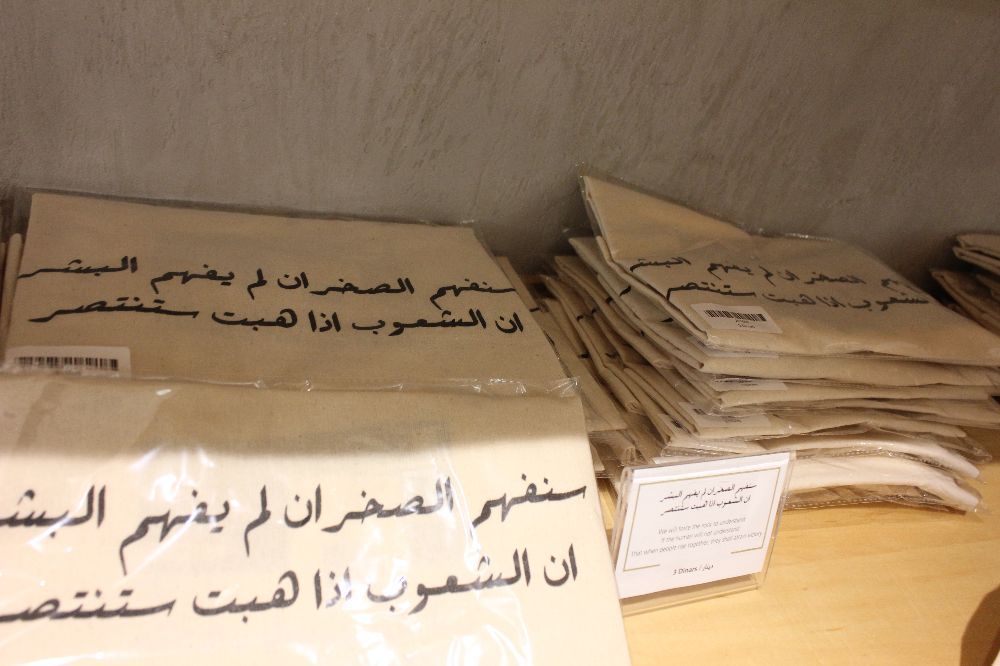 سنفهم الصخر ان لم يفهم البشر
ان الشعوب اذا هبت ستنتصر
سنفهم الصخر ان لم يفهم البشر
ان الشعوب اذا هبت ستنتصر
سنفهم الصخر ان لم يفهم البشر
ان الشعوب اذا هبت ستنتصر
سنفهم الصخر ان لم يفهم البشر
ان الشعوب اذا هبت ستنتصر
We will force the rock to understand
If the human will not understand
That when people rise together, they shall attain victory
3 Dinars / دينار